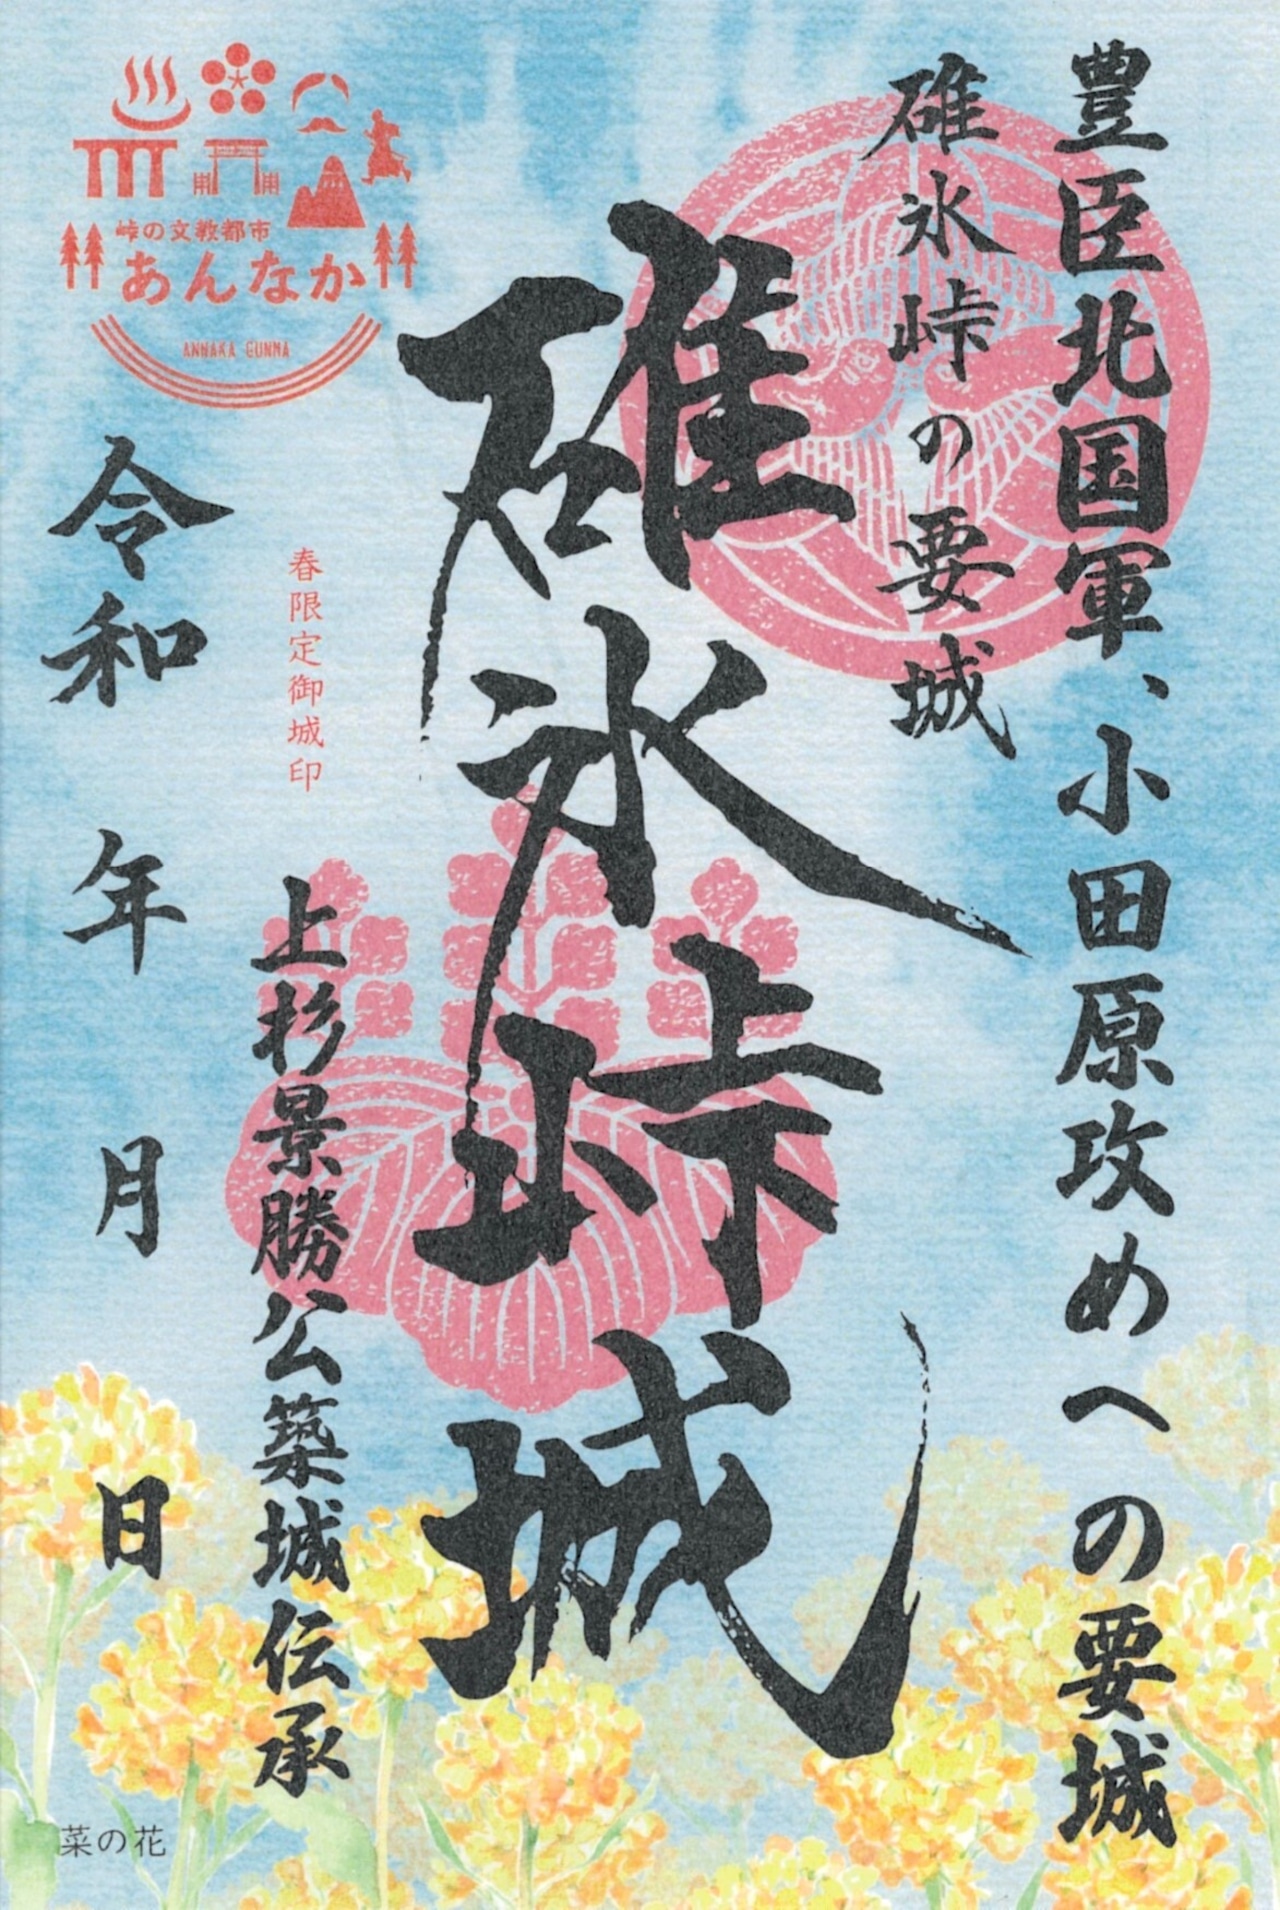 豊臣北国軍、小田原攻めへの要城
碓氷峠の要城
碓氷峠城
春限定御城印
上杉景勝公築城伝承
令和 年 月 日
峠の文教都市
あんなか
ANNAKA GUNMA
菜の花